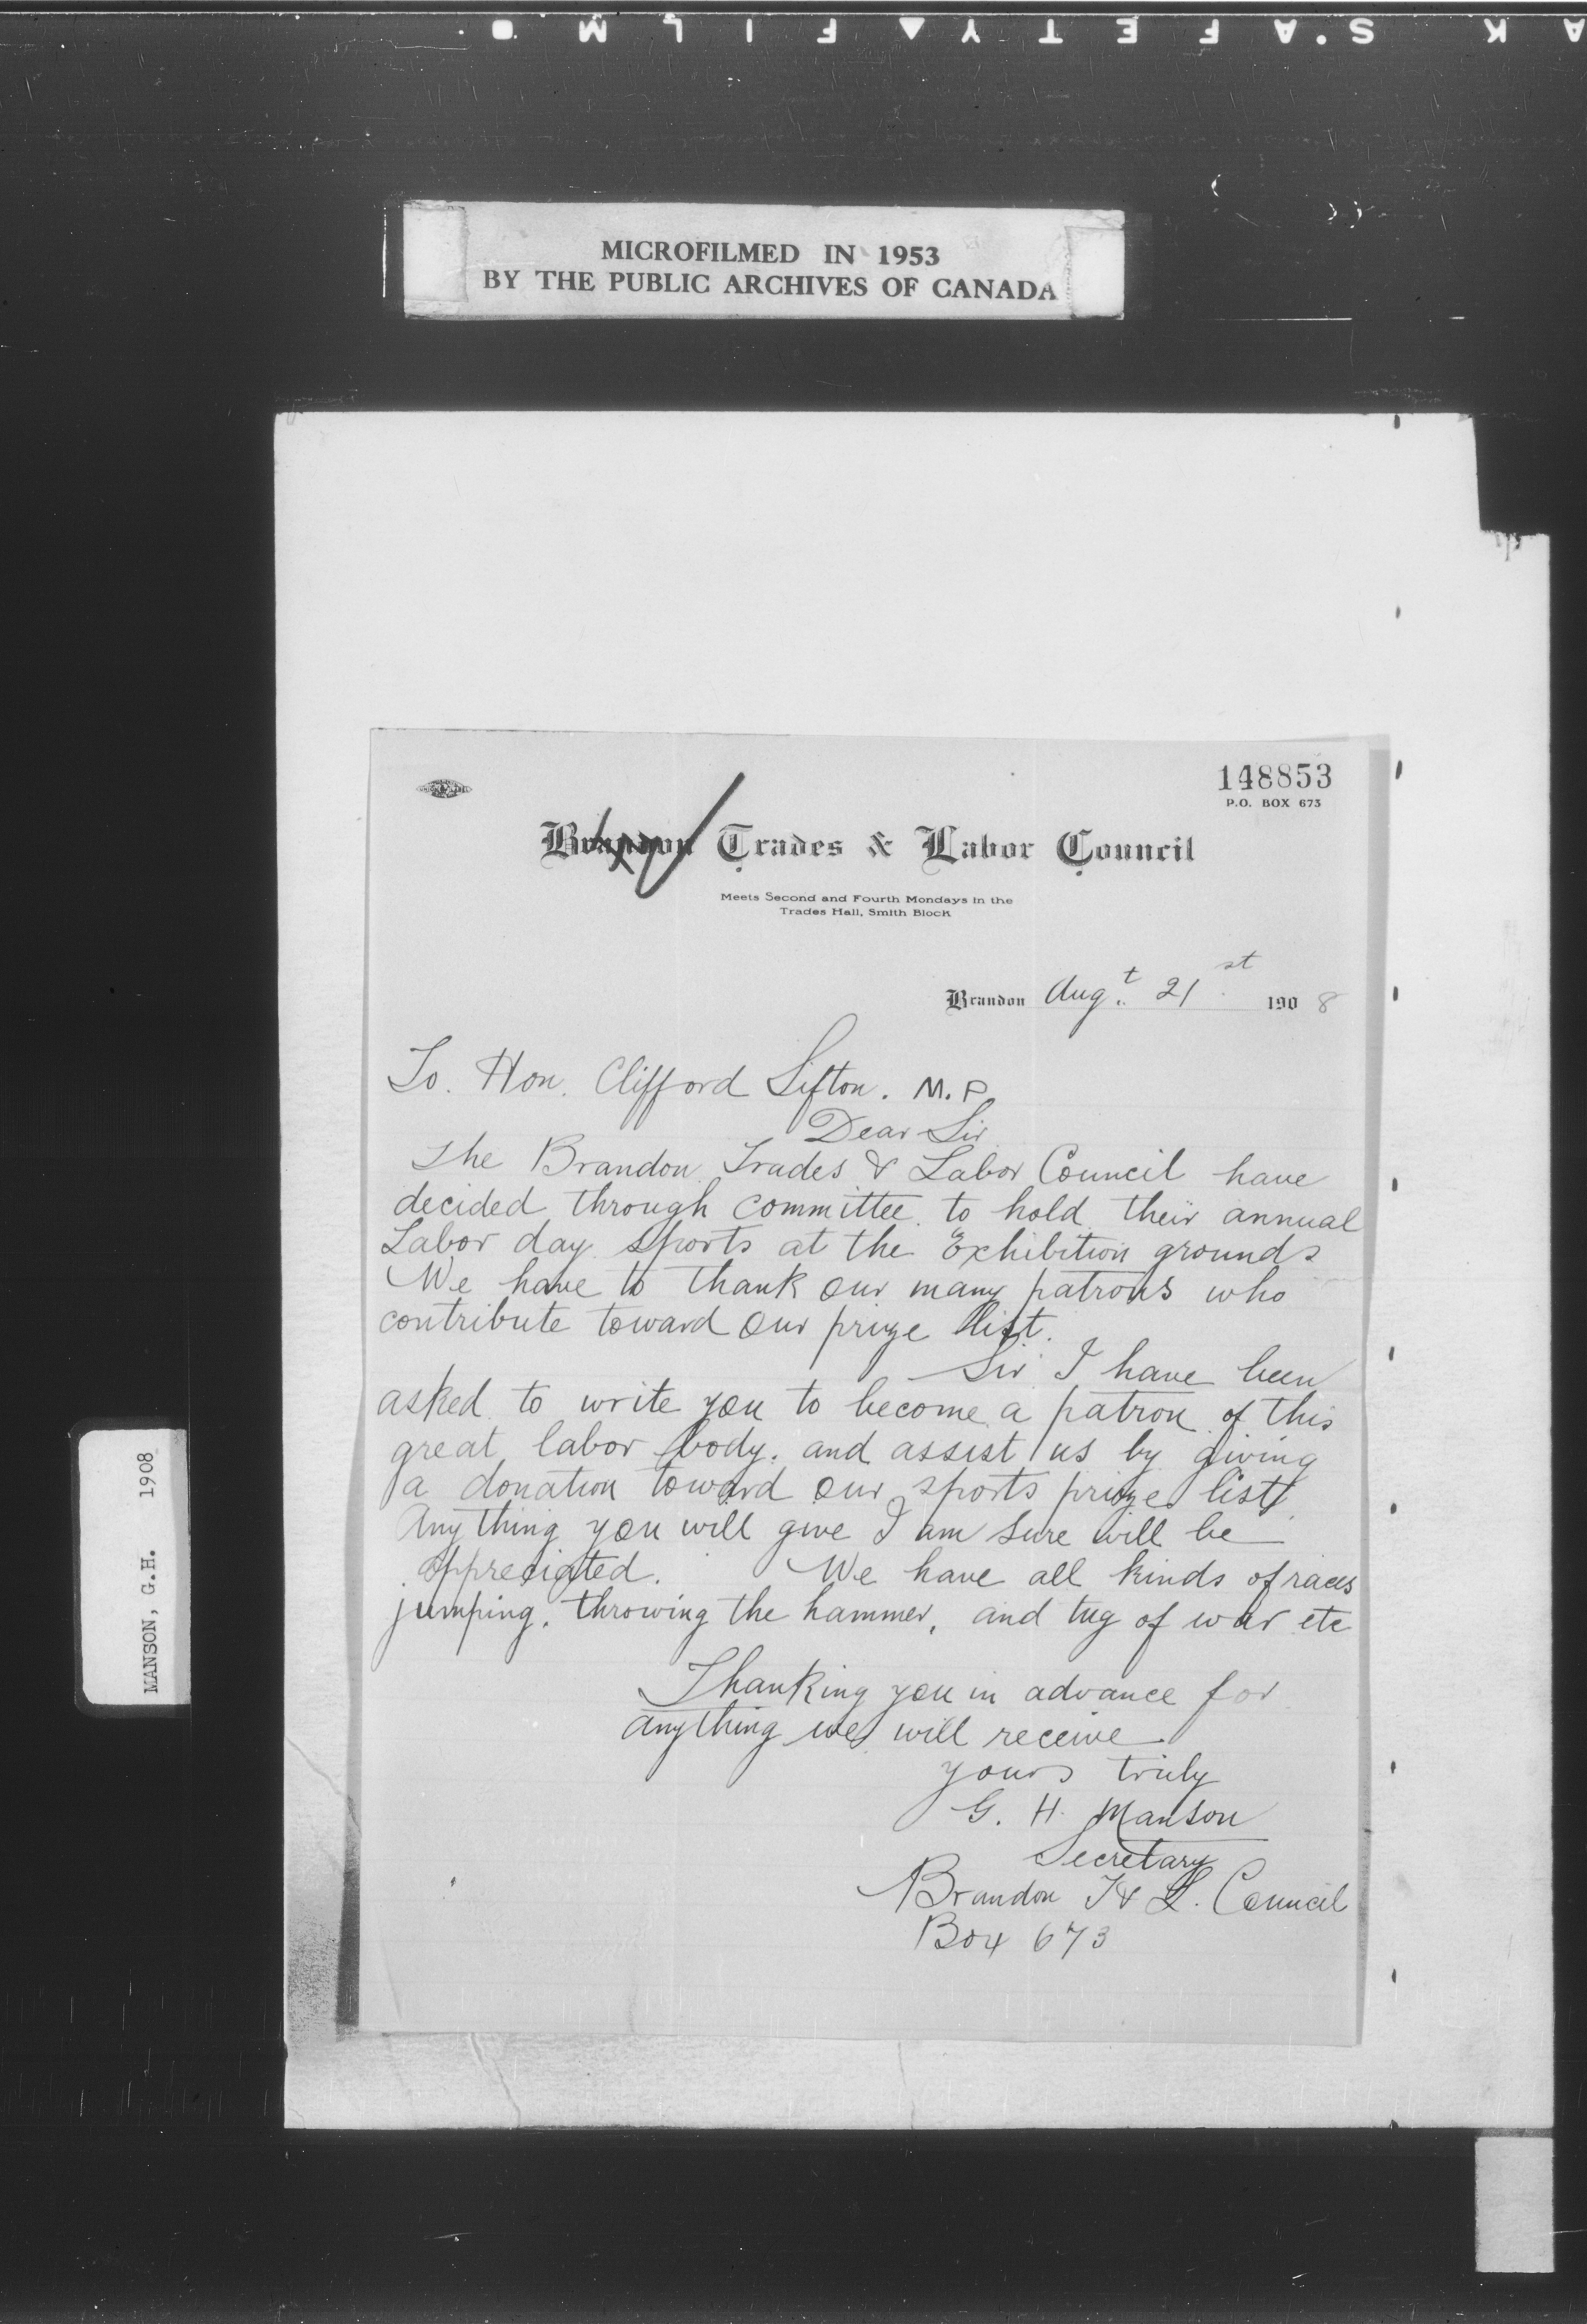 K S'AFETY▲FILM
MICROFILMED IN 1953
BY THE PUBLIC ARCHIVES OF CANADA
148853
P.O. BOX 673
Brandon Trades & Labor Council
Meets Second and Fourth Mondays in the
Trades Hall, Smith Block
Brandon Augt. 21st 1908
To. Hon. Clifford Sifton. M.P.
Dear Sir
The Brandon Trades & Labor Council have
decided through committee to hold their annual
Labor day sports at the Exhibition grounds
We have to thank our many patrons who
contribute toward our prize list.
Sir I have been
asked to write you to become a patron of this
great labor body. and assist us by giving
a donation toward our sports prize list
Anything you will give I am sure will be
appreciated. We have all kinds of races
jumping, throwing the hammer, and tug of war etc
Thanking you in advance for
anything we will receive
yours truly
G. H. Manson
Secretary
Brandon T & L. Council
Box 673
MANSON, G.H. 1908